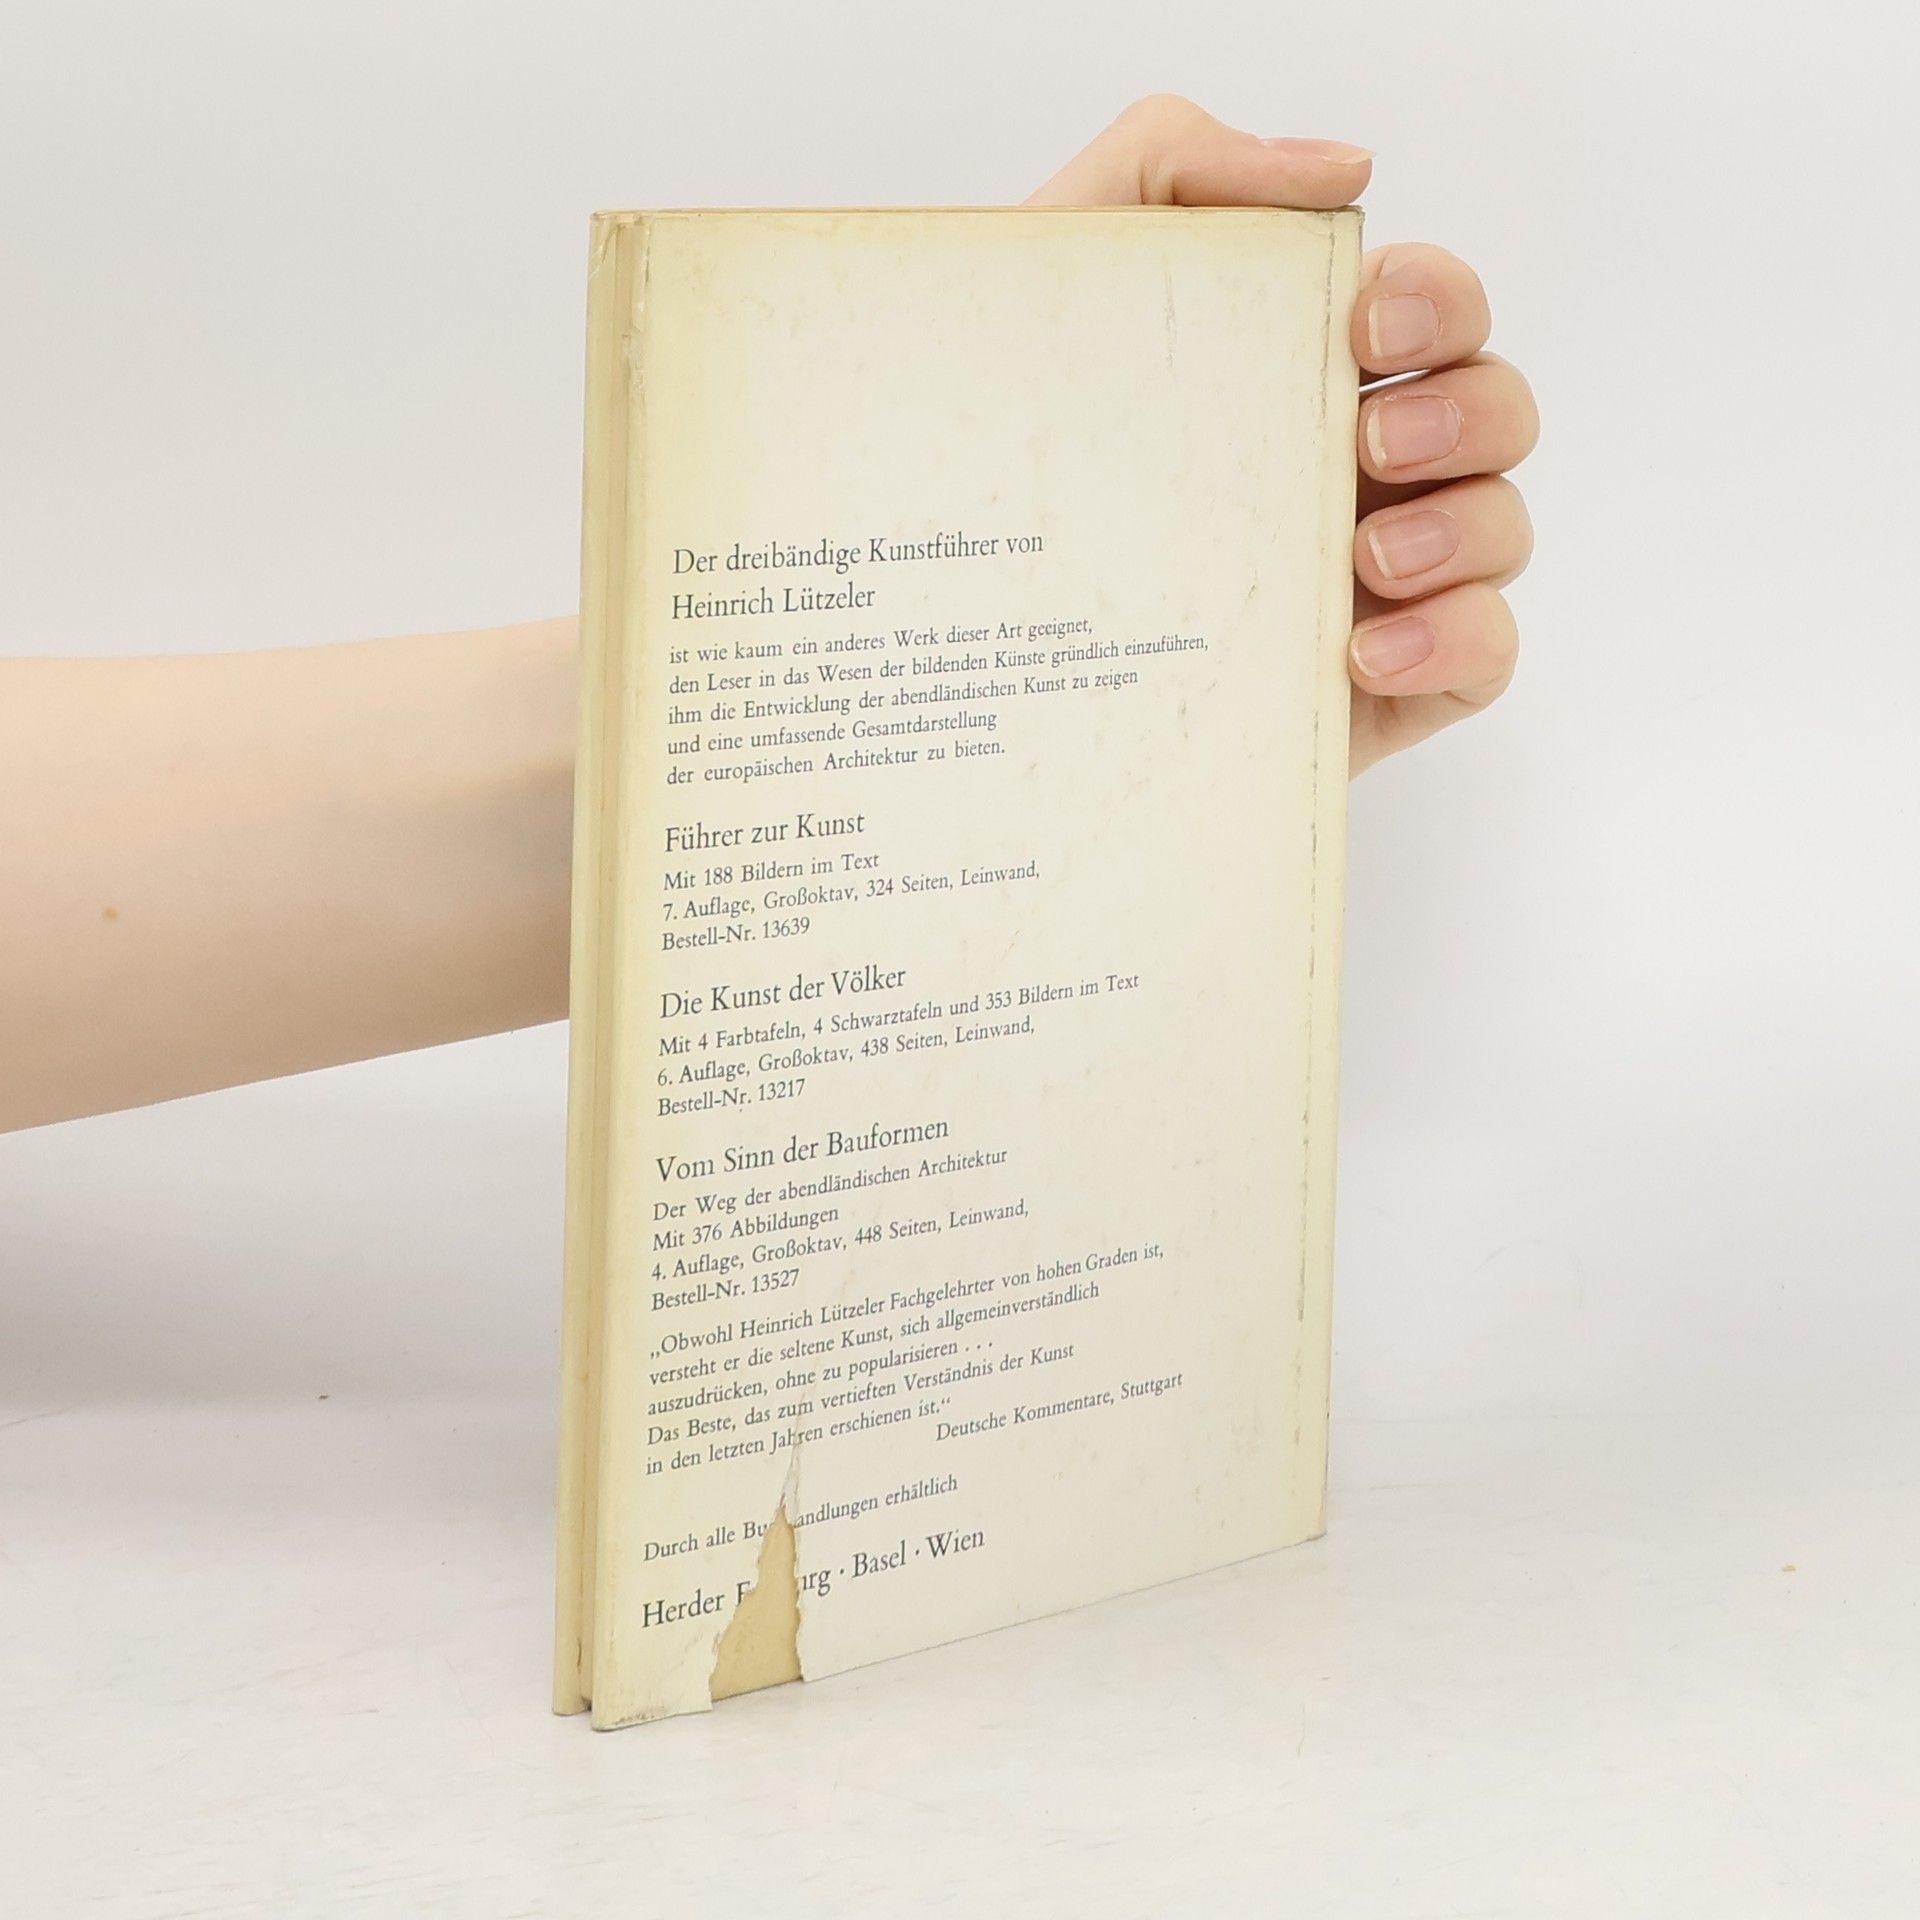 Der dreibändige Kunstführer von
Heinrich Lützeler
ist wie kaum ein anderes Werk dieser Art geeignet,
den Leser in das Wesen der bildenden Künste gründlich einzuführen,
ihm die Entwicklung der abendländischen Kunst zu zeigen
und eine umfassende Gesamtdarstellung
der europäischen Architektur zu bieten.
Führer zur Kunst
Mit 188 Bildern im Text
7. Auflage, Großoktav, 324 Seiten, Leinwand,
Bestell-Nr. 13639
Die Kunst der Völker
Mit 4 Farbtafeln, 4 Schwarztafeln und 353 Bildern im Text
6. Auflage, Großoktav, 438 Seiten, Leinwand,
Bestell-Nr. 13217
Vom Sinn der Bauformen
Der Weg der abendländischen Architektur
Mit 376 Abbildungen
4. Auflage, Großoktav, 448 Seiten, Leinwand,
Bestell-Nr. 13527
„Obwohl Heinrich Lützeler Fachgelehrter von hohen Graden ist,
versteht er die seltene Kunst, sich allgemeinverständlich
auszudrücken, ohne zu popularisieren . . .
Das Beste, das zum vertieften Verständnis der Kunst
in den letzten Jahren erschienen ist.“
Deutsche Kommentare, Stuttgart
Durch alle erhältlich
Herder · Basel · Wien